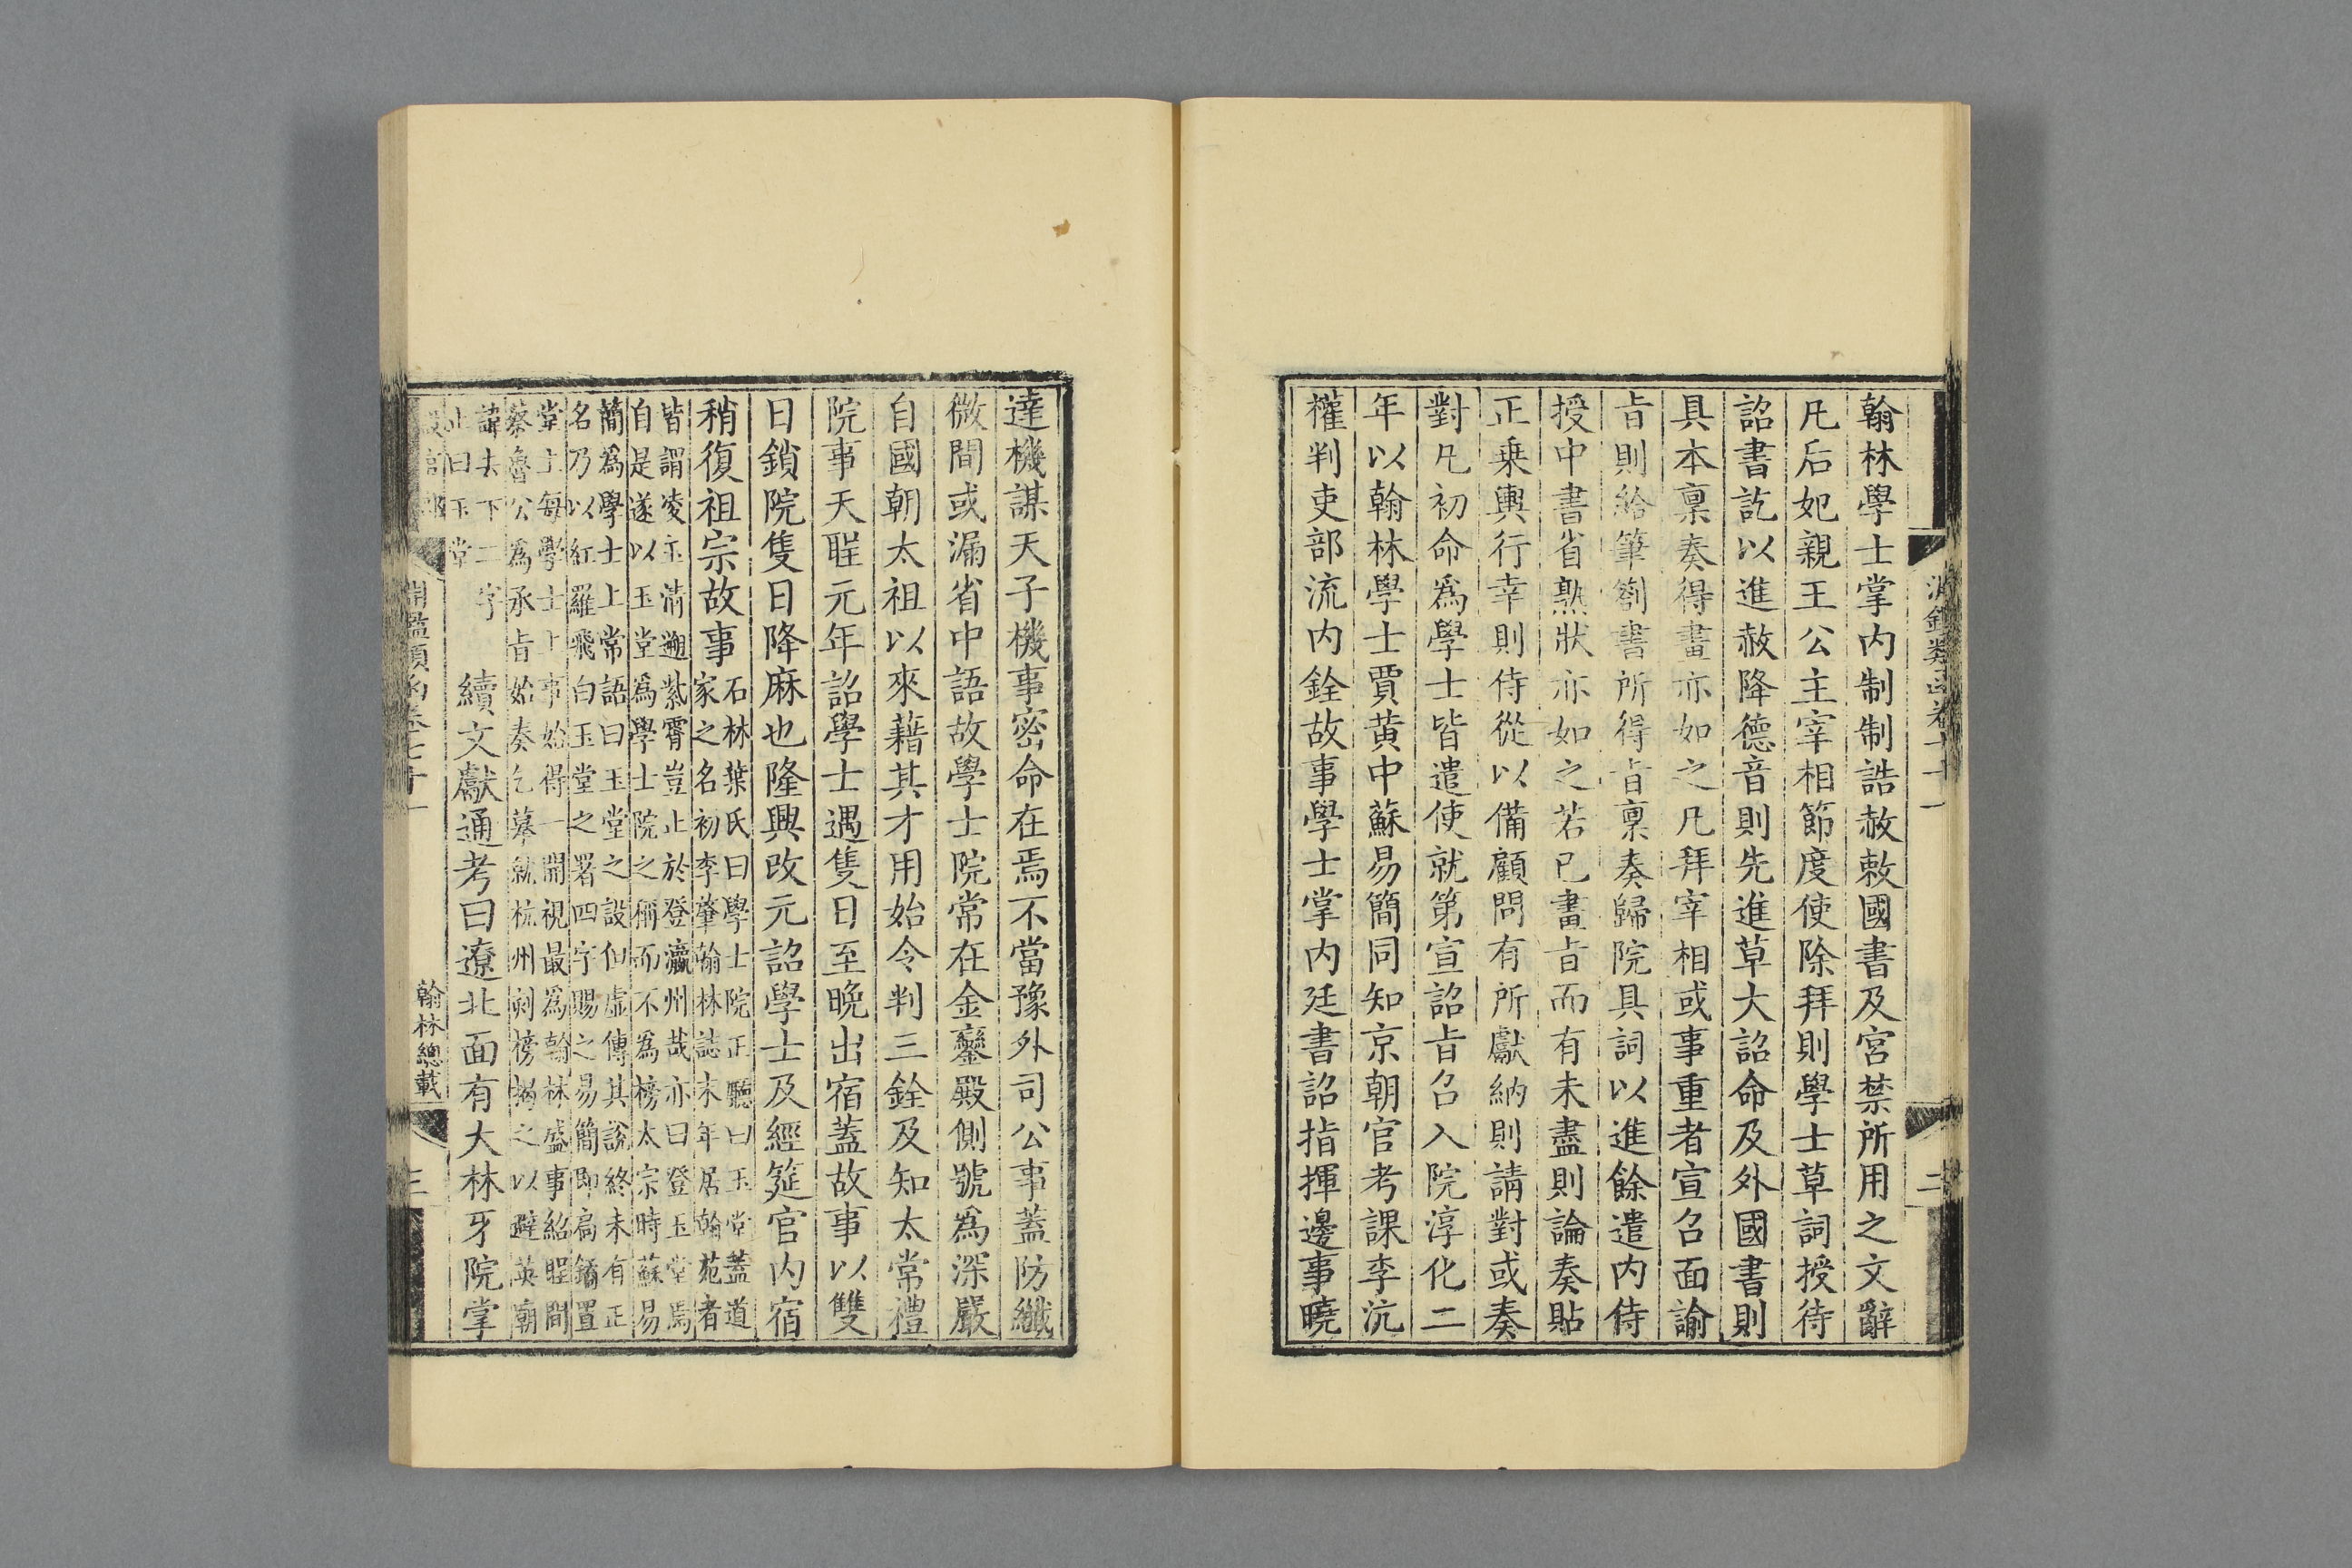 翰林學士掌内制制誥赦敕國書及宮禁所用之文辭
凡后妃親王公主宰相節度使除拜則學士草詞授待
詔書訖以進赦降德音則先進草大詔命及外國書則
具本稟奏得畫亦如之凡拜宰相或事重者宣召面諭
旨則給筆劄書所得旨稟奏歸院具詞以進餘遣内侍
授中書省熟狀亦如之若已畫旨而有未盡則論奏貼
正乗輿行幸則侍從以備顧問有所獻納則請對或奏
對凡初命爲學士皆遣使就第宣詔旨召入院淳化二
年以翰林學士賈黄中蘇易簡同知京朝官考課李沆
權判吏部流内銓故事學士掌内廷書詔指揮邊事曉
達機謀天子機事密命在焉不當豫外司公事蓋防纖
微間或漏省中語故學士院常在金鑾殿側號爲深嚴
自國朝太祖以來藉其才用始令判三銓及知太常禮
院事天聖元年詔學士遇隻日至晚出宿蓋故事以雙
日鎖院隻日降麻也隆興改元詔學士及經筵官内宿
稍復祖宗故事
石林葉氏曰學士院正廳曰玉堂蓋道
家之名初李肇翰林誌末年居翰苑者
皆謂凌玉清遡紫霄豈止於登瀛州哉亦曰登玉堂焉
自是遂以玉堂爲學士院之稱而不爲榜太宗時蘇易
簡爲學士上常語曰玉堂之設但虛傳其說終未有正
名乃以紅羅飛白玉堂之署四字賜之易簡即扃鐍置
堂上每學士上事始得一開視最爲翰林盛事紹聖間
蔡魯公爲承旨始奏乞摹就杭州刻榜揭之以避英廟
諱去下二字
止曰玉堂
續文獻通考曰遼北面有大林牙院掌
淵鑑類函卷七十一
翰林總載
三
二